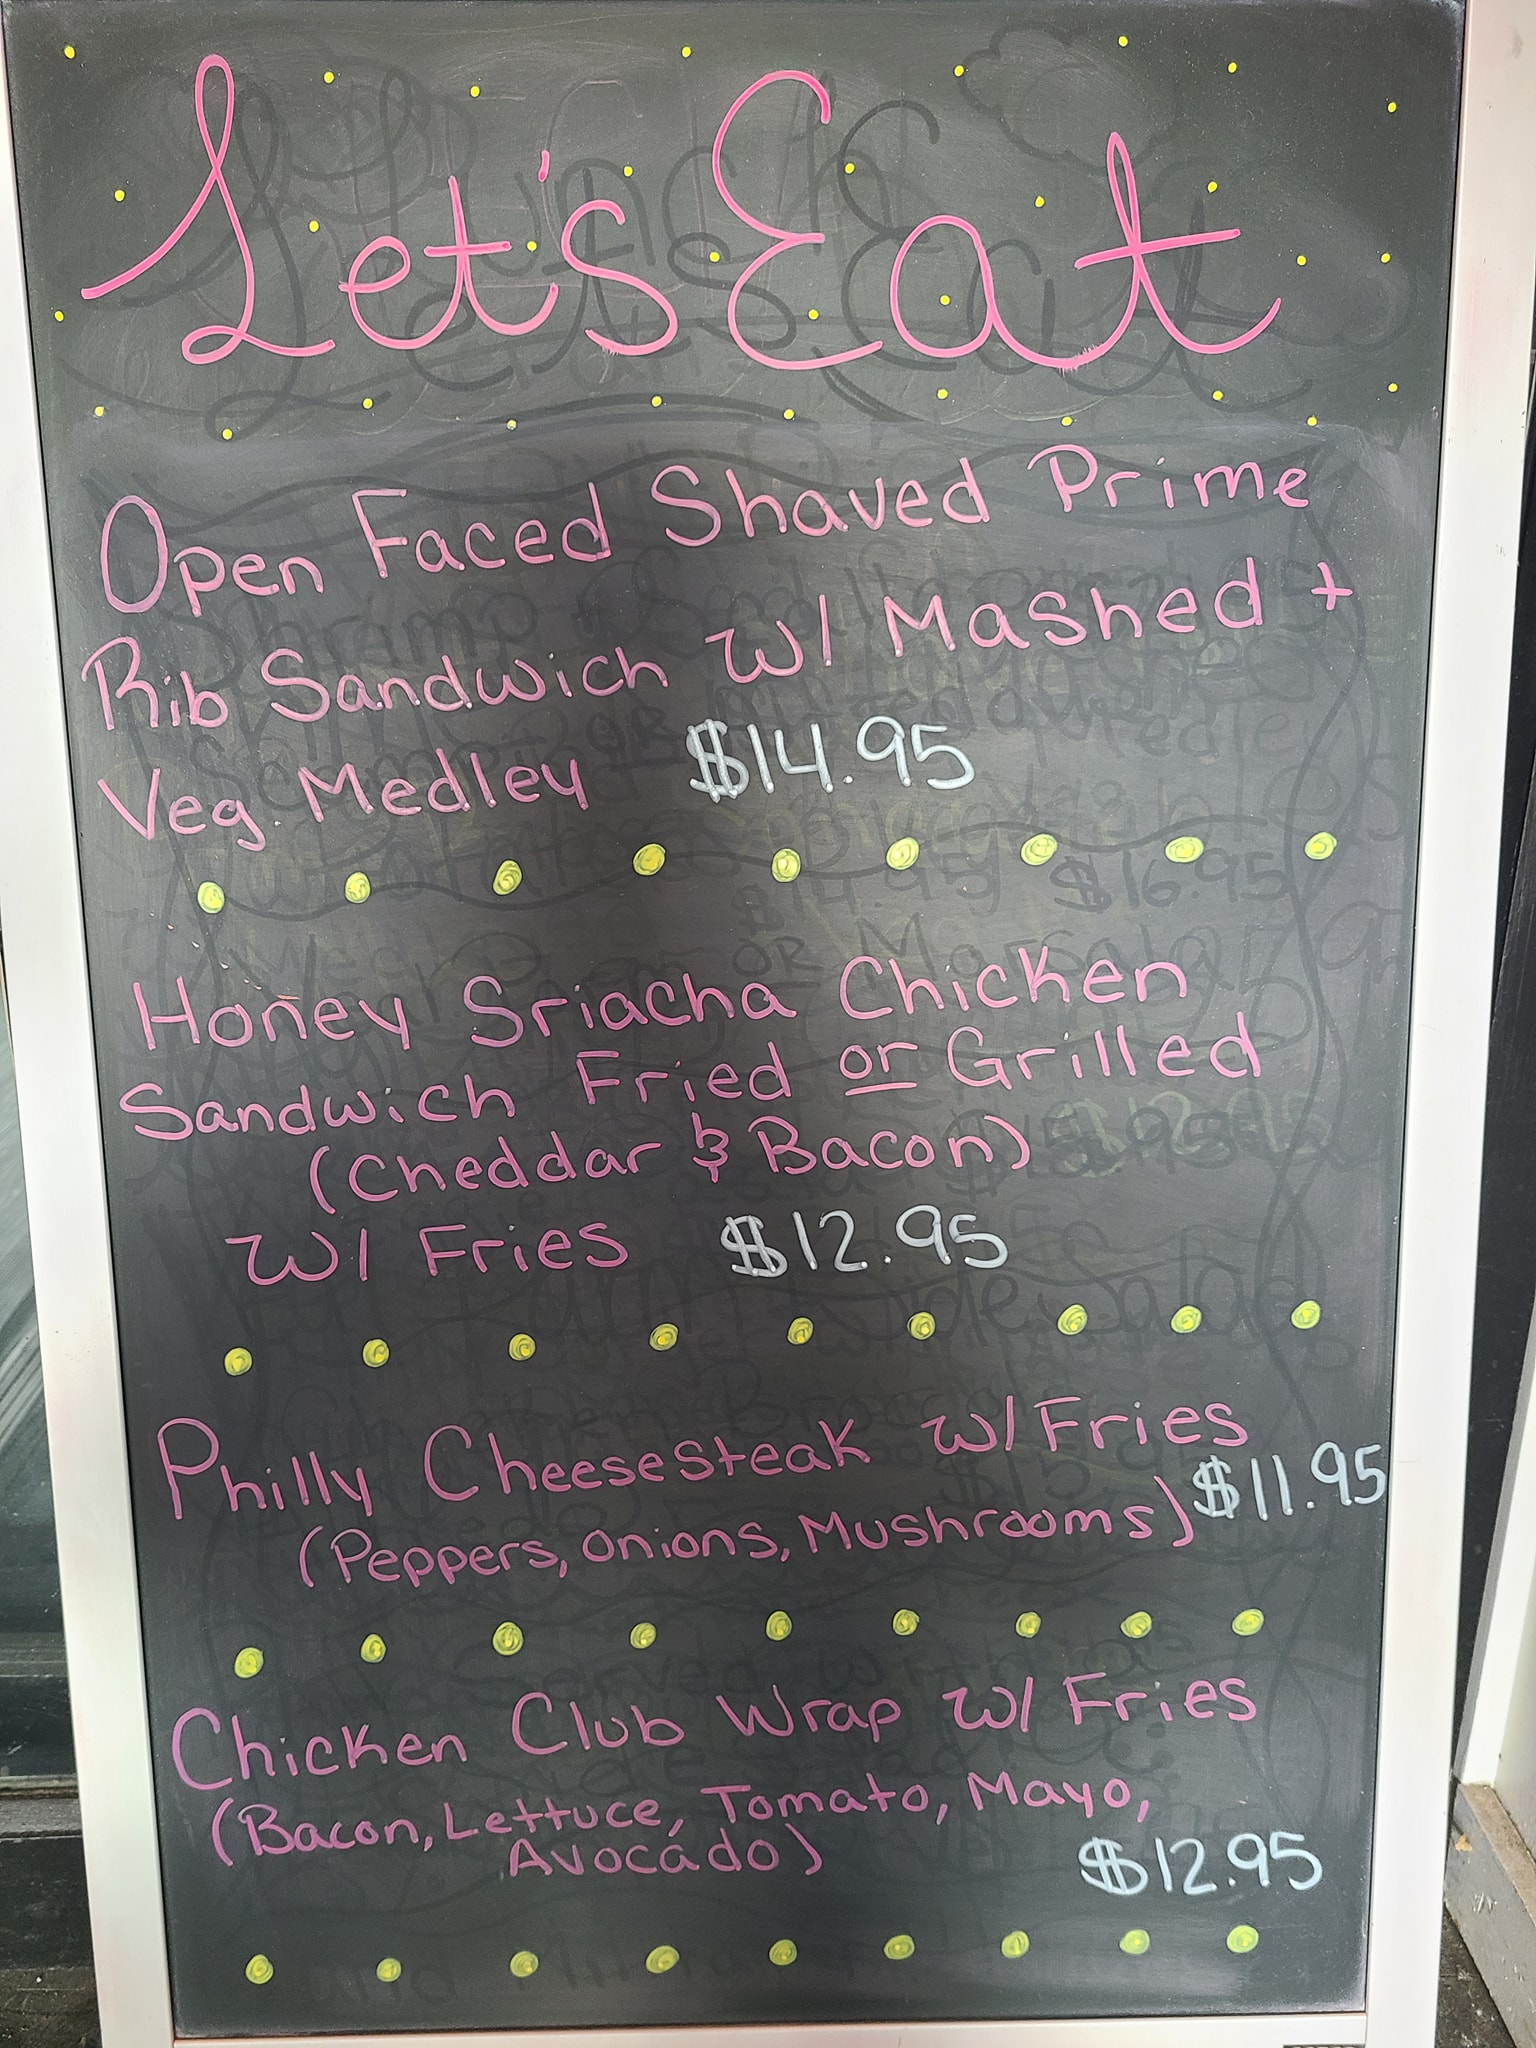 Let's Eat
Open Faced Shaved Prime
Rib Sandwich w/ Mashed +
Veg. Medley $14.95
Honey Sriacha Chicken
Sandwich Fried or Grilled
(Cheddar & Bacon)
w/ Fries $12.95
Philly Cheesesteak w/ Fries
(Peppers, Onions, Mushrooms) $11.95
Chicken Club Wrap w/ Fries
(Bacon, Lettuce, Tomato, Mayo,
Avocado) $12.95